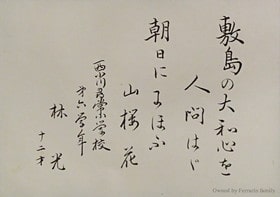 敷島の大和心を
人問はゞ
朝日ににほふ
山桜花
西川尋常小学校
第六学年
林 光
十二才
Owned by Ferraris family